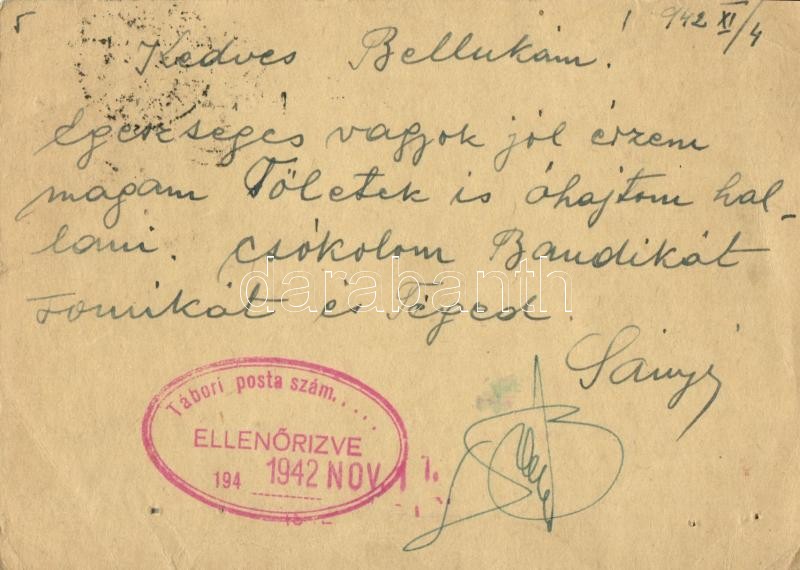 5
! 942 XI/4
Kedves Bellukám!
Egészséges vagyok jól érzem
magam Töletek is óhajtom hal-
lani. csókolom Bandikát
Tomikát és Téged.
Sányi
darabanth.com
Tábori posta szám.....
ELLENŐRIZVE
194 1942 NOV 17.